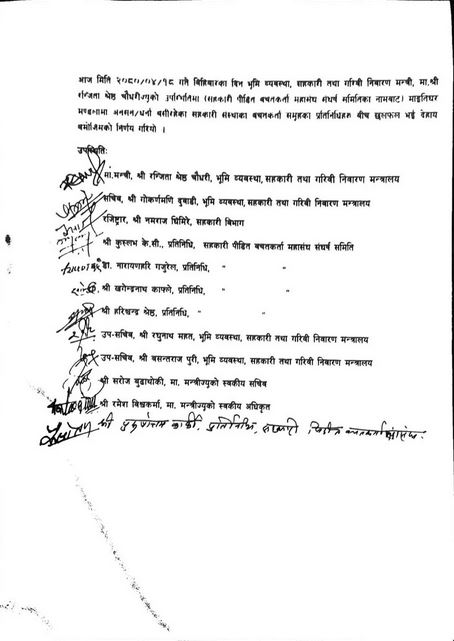 आज मिति २०८०/०४/१८ गते बिहिबारका दिन भूमि व्यवस्था, सहकारी तथा गरिवी निवारण मन्त्री, मा.श्री
रन्जिता श्रेष्ठ चौधरीज्यूको उपस्थितिमा (सहकारी पीडित बचतकर्ता महासंघ संघर्ष समितिका नामबाट) माइतिघर
मण्डलामा अनसन/धर्ना बसीरहेका सहकारी संस्थाका बचतकर्ता समूहका प्रतिनिधिहरु बीच छलफल भई देहाय
बमोजिमको निर्णय गरियो ।
उपस्थितिः
मा.मन्त्री, श्री रन्जिता श्रेष्ठ चौधरी, भूमि व्यवस्था, सहकारी तथा गरिवी निवारण मन्त्रालय
सचिव, श्री गोकर्णमणि दुवाडी, भूमि व्यवस्था, सहकारी तथा गरिवी निवारण मन्त्रालय
रजिष्ट्रार, श्री नमराज घिमिरे, सहकारी विभाग
श्री कुस्लभ के.सी., प्रतिनिधि, सहकारी पीडित बचतकर्ता महासंघ संघर्ष समिति
डा. नारायणहरि गजुरेल, प्रतिनिधि, " "
श्री खगेन्द्रनाथ काफ्ले, प्रतिनिधि, " "
श्री हरिश्चन्द्र श्रेष्ठ, प्रतिनिधि, " "
उप-सचिव, श्री रघुनाथ महत, भूमि व्यवस्था, सहकारी तथा गरिवी निवारण मन्त्रालय
उप-सचिव, श्री बसन्तराज पुरी, भूमि व्यवस्था, सहकारी तथा गरिवी निवारण मन्त्रालय
श्री सरोज बुढाथोकी, मा. मन्त्रीज्यूको स्वकीय सचिव
श्री रमेश विश्वकर्मा, मा. मन्त्रीज्यूको स्वकीय अधिकृत
श्री पुरुषोत्तम कार्की, प्रतिनिधि, सहकारी पीडित बचतकर्ता महासंघ.